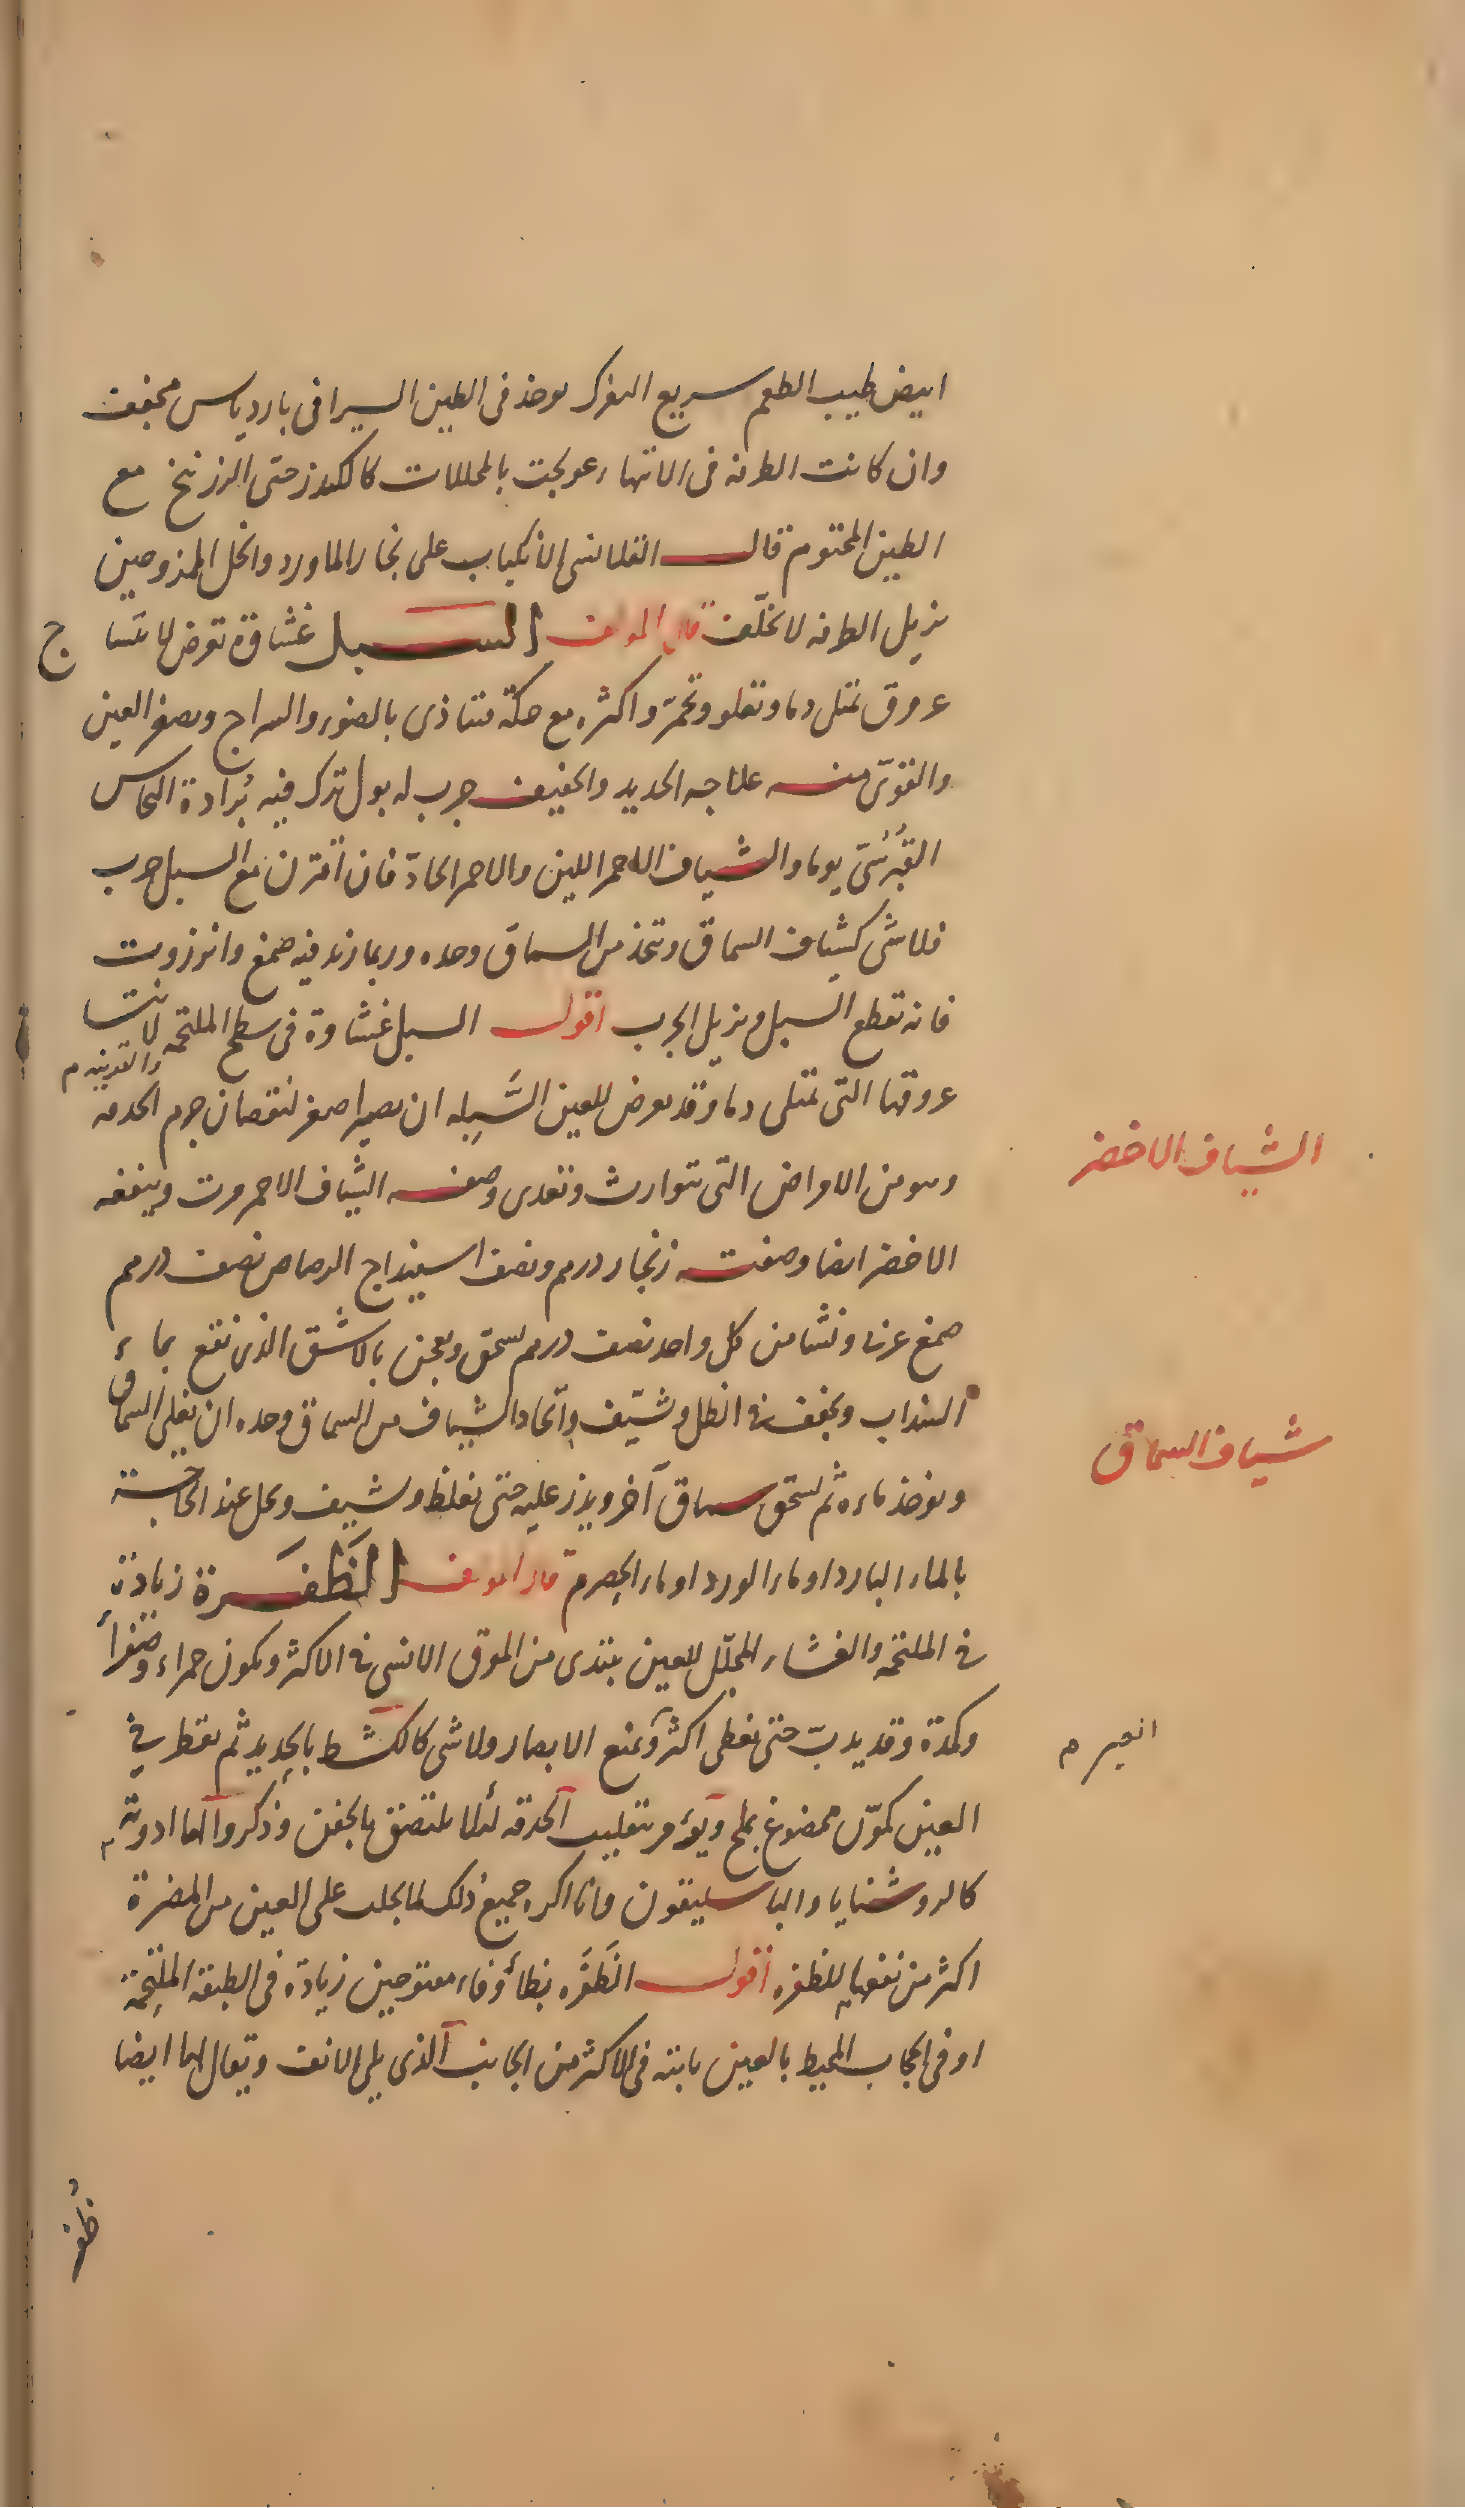 ابيض طيب الطعم سريع التفرك يوخذ فى الطين السيرافى بارد يابس مجفف
وان كانت الطرفه فى الانتهاء عولجت بالمحللات كالكندر حتى الزرنيخ مع
الطين المختوم قال القلانسى الانكباب على بخار الماورد والخل الممزوجين
يزيل الطرفه لا يخلّف قال المولف السبل غشاوة تعرض لانتساج
عروق تمتلى دما وتعلو وتحمرّ واكثره مع حكّة تتاذى بالضوء والسراج ويصغر العين
والقوىّ منه علاجه الحديد والخفيف جرب له بول ترك فيه بُرادة النحاس
القُبرُسىّ يوما والشياف الاحمر اللين والاحمر الحادّ فان اقترن مع السبل جرب
فلا شى كشياف السماق ويتخذ من السماق وحده وربما زيد فيه صمغ وانزروت
فانه يقطع السبل ويزيل الجرب اقول السبل غشاوة فى سطح الملتحمه لانتسا
والقرنيه م
عروقها التى تمتلى دما وقد يعرض للعين السَّبِله ان يصير اصغر لنقصان جرم الحدقه
وهو من الامراض التى تتوارث وتعدى وصفه الشياف الاحمر مرت وينفعه
الشياف الاخضر
الاخضر ايضا وصفته زنجار درهم ونصف اسفيداج الرصاص نصف درهم
صمغ عربى ونشا من كل واحد نصف درهم يسحق ويعجن بالاشّق الذى نقع بماء
السذاب ويجفف فى الظل ويشيّف واتّخاذ الشياف من السماق وحده ان يغلى السماق
شياف السماق
ويوخذ ماءه ثم يسحق سماق آخر ويذر عليه حتى يغلظ ويشيف ويحل عند الحاجة
بالماء البارد او ماء الورد او ماء الحصرم قال المولف الظَفَرة زيادة
فى الملتحمه والغشاء المجلّل للعين يبتدى من الموق الانسى فى الاكثر ويكون حمراء وصفراء
وكمدة وقد يدبّ حتى يغطى اكثر ويمنع الابصار ولا شى كالكشط بالحديد ثم يقطر فى
العين م
العين كمّون ممضوغ بملح ويؤمر بتقليب الحدقه لئلا يلتصق بالجفن وذكروا لها ادوية
كالروشنايا والباسليقون وانا اكره جميع ذلك لما يجلب على العين من المضرة
اكثر من نفعها للظفره اقول الظَفَرَه بظاء وفاء مفتوحين زيادة فى الطبقة الملتحمة
او فى الحجاب المحيط بالعين نابته فى الاكثر من الجانب الذى يلى الانف ويقال لها ايضا
ظُفر